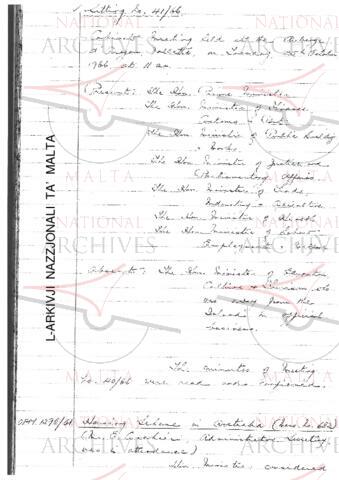 Sitting No. 41/66
Cabinet Meeting held at the Auberge
d'Aragon Valletta, on Tuesday, 25th October
1966 at 11 am.
Present: The Hon. Prime Minister
The Hon. Minister of Finance
Customs & Port
The Hon. Minister of Public Building
& Works
The Hon. Minister of Justice and
Parliamentary Affairs
The Hon. Minister of Trade,
Industry & Agriculture
The Hon. Minister of Health
The Hon. Minister of Labour
Employment
Absent: The Hon. Minister of Education
Culture & Tourism, who
was away from the
Island on official
business.
The minutes of Meeting
No. 40/66 were read and confirmed.
OPM 1295/61 Housing Scheme in
(Mr E. Administrative Secretary
was in attendance)
The Ministers considered
L-ARKIVJI NAZZJONALI TA' MALTA
NATIONAL
ARCHIVES
MALTA